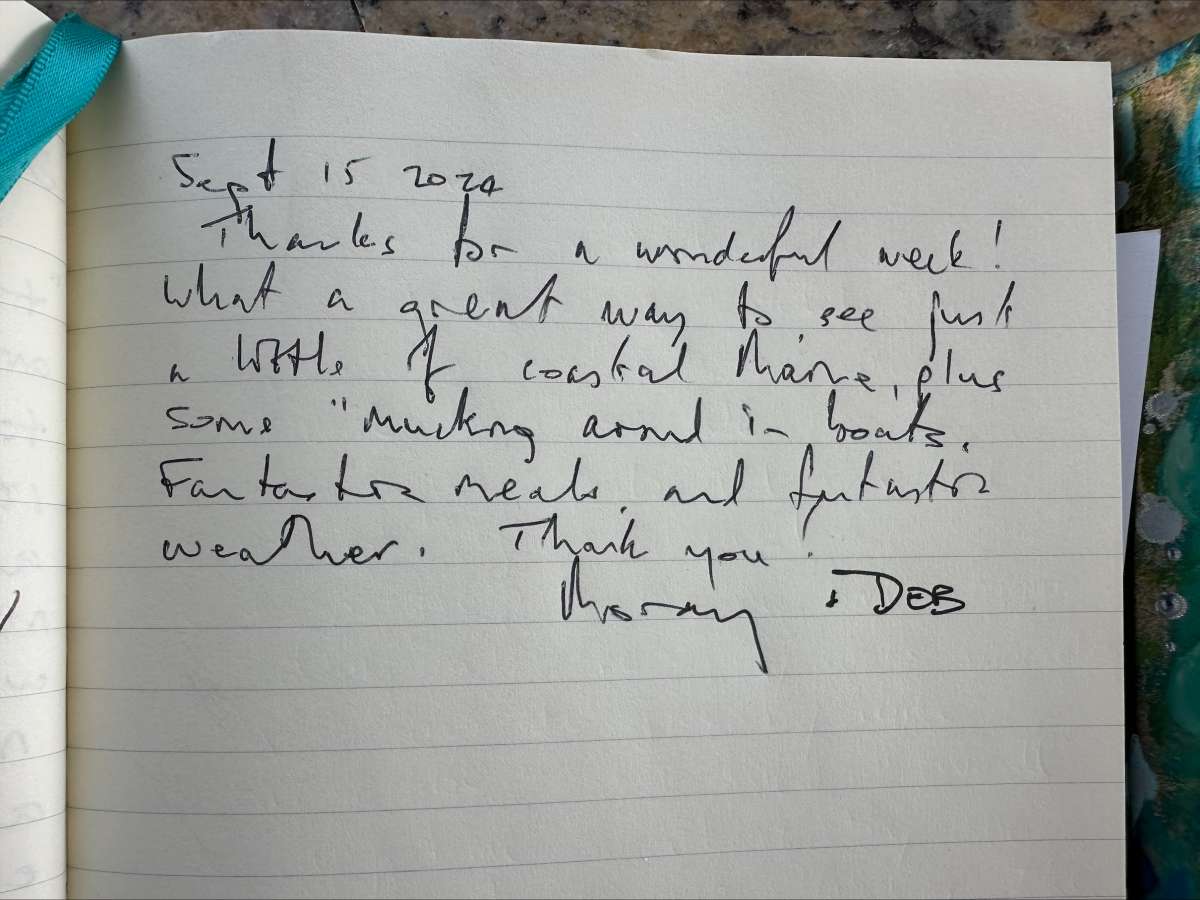 Sept 15 2024
Thanks for a wonderful week!
What a great way to see just
a little of coastal Maine, plus
some "mucking around in boats.
Fantastic meals, and fantastic
weather. Thank you!
+ DEB